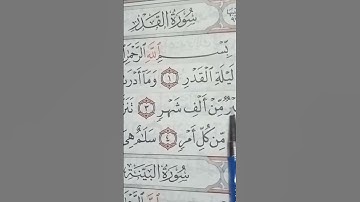 سُورَةُ الْقَدْرِ
بِسْمِ اللَّهِ الرَّحْمَٰ
لَيْلَةِ الْقَدْرِ ١ وَمَا أَدْرَ
مِّنْ أَلْفِ شَهْرٍ ٣ تَنَز
مِّن كُلِّ أَمْرٍ ٤ سَلَامٌ هِيَ
سُورَةُ الْبَيِّنَةِ